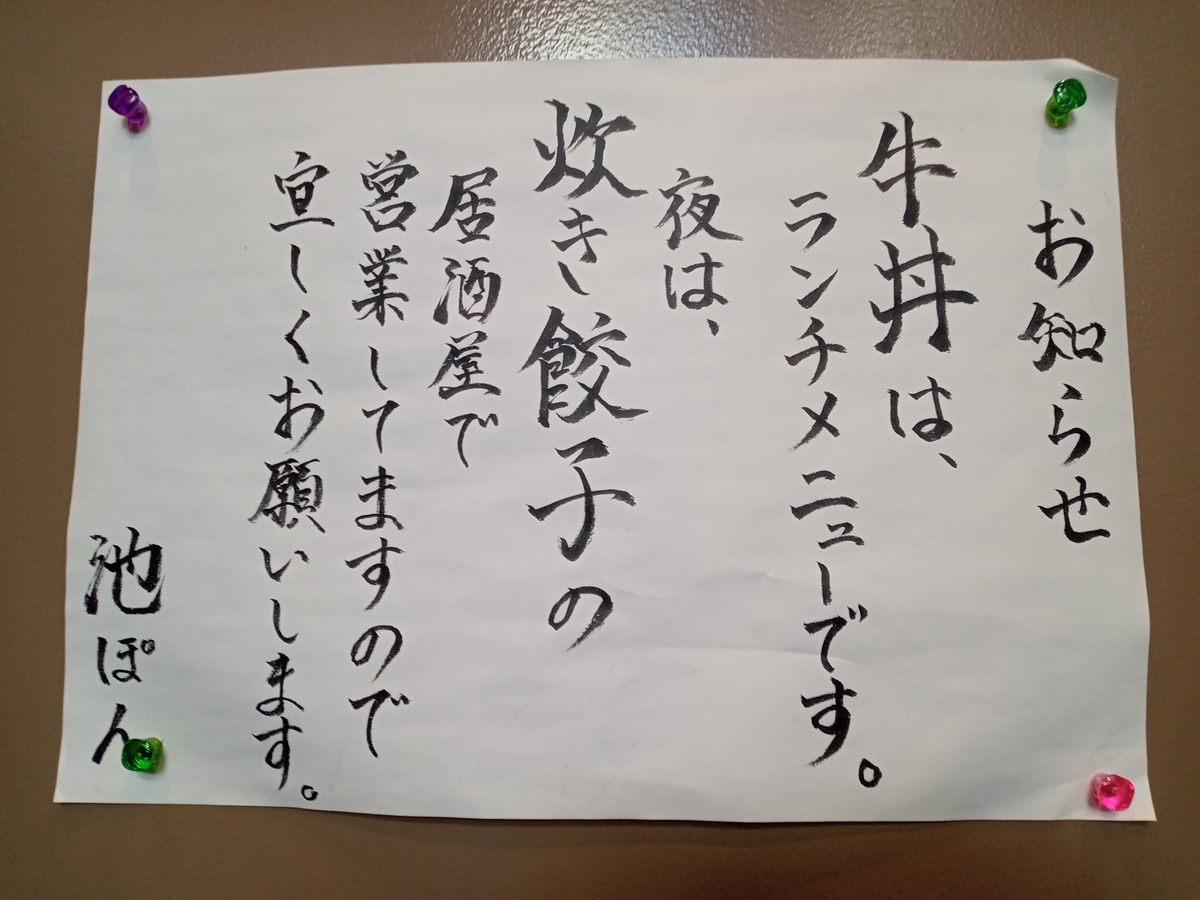 お知らせ
牛丼は、
ランチメニューです。
夜は、
炊き餃子の
居酒屋で
営業してますので
宜しくお願いします。
池ぽん